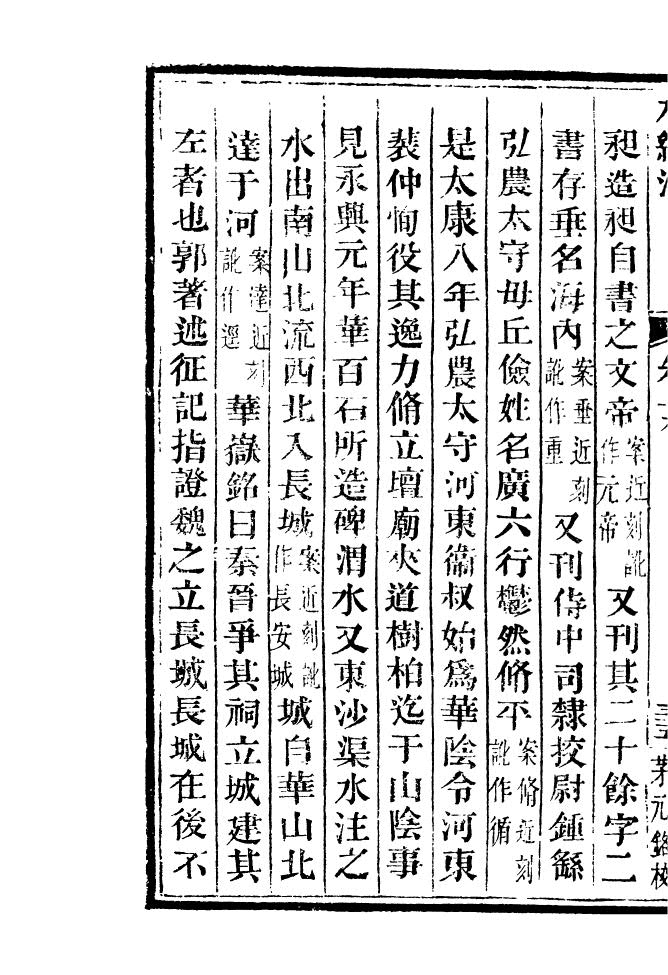 水經注 卷十九 三十 業元銘校
昶造昶自書之文帝案近刻訛作元帝又刊其二十餘字二
書存垂名海內案垂近刻訛作重又刊侍中司隸挍尉鍾繇
弘農太守毋丘儉姓名廣六行鬱然脩平案脩近刻訛作循
是太康八年弘農太守河東衞叔始爲華陰令河東
裴仲恂役其逸力脩立壇廟夾道樹柏迄于山陰事
見永興元年華百石所造碑渭水又東沙渠水注之
水出南山北流西北入長城案近刻訛作長安城城自華山北
達于河案達近刻訛作逕華嶽銘曰秦晉爭其祠立城建其
左者也郭著述征記指證魏之立長城長城在後不